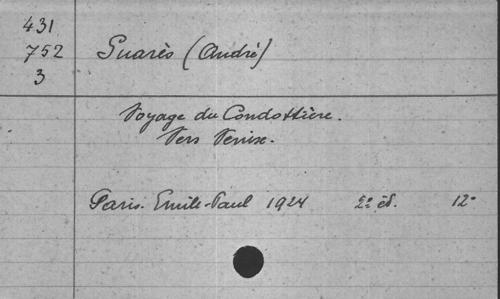 431
752
3
Suarès (André)
Voyage du Condottière.
Vers Venise.
Paris. Emile-Paul 1924 2e éd. 12°